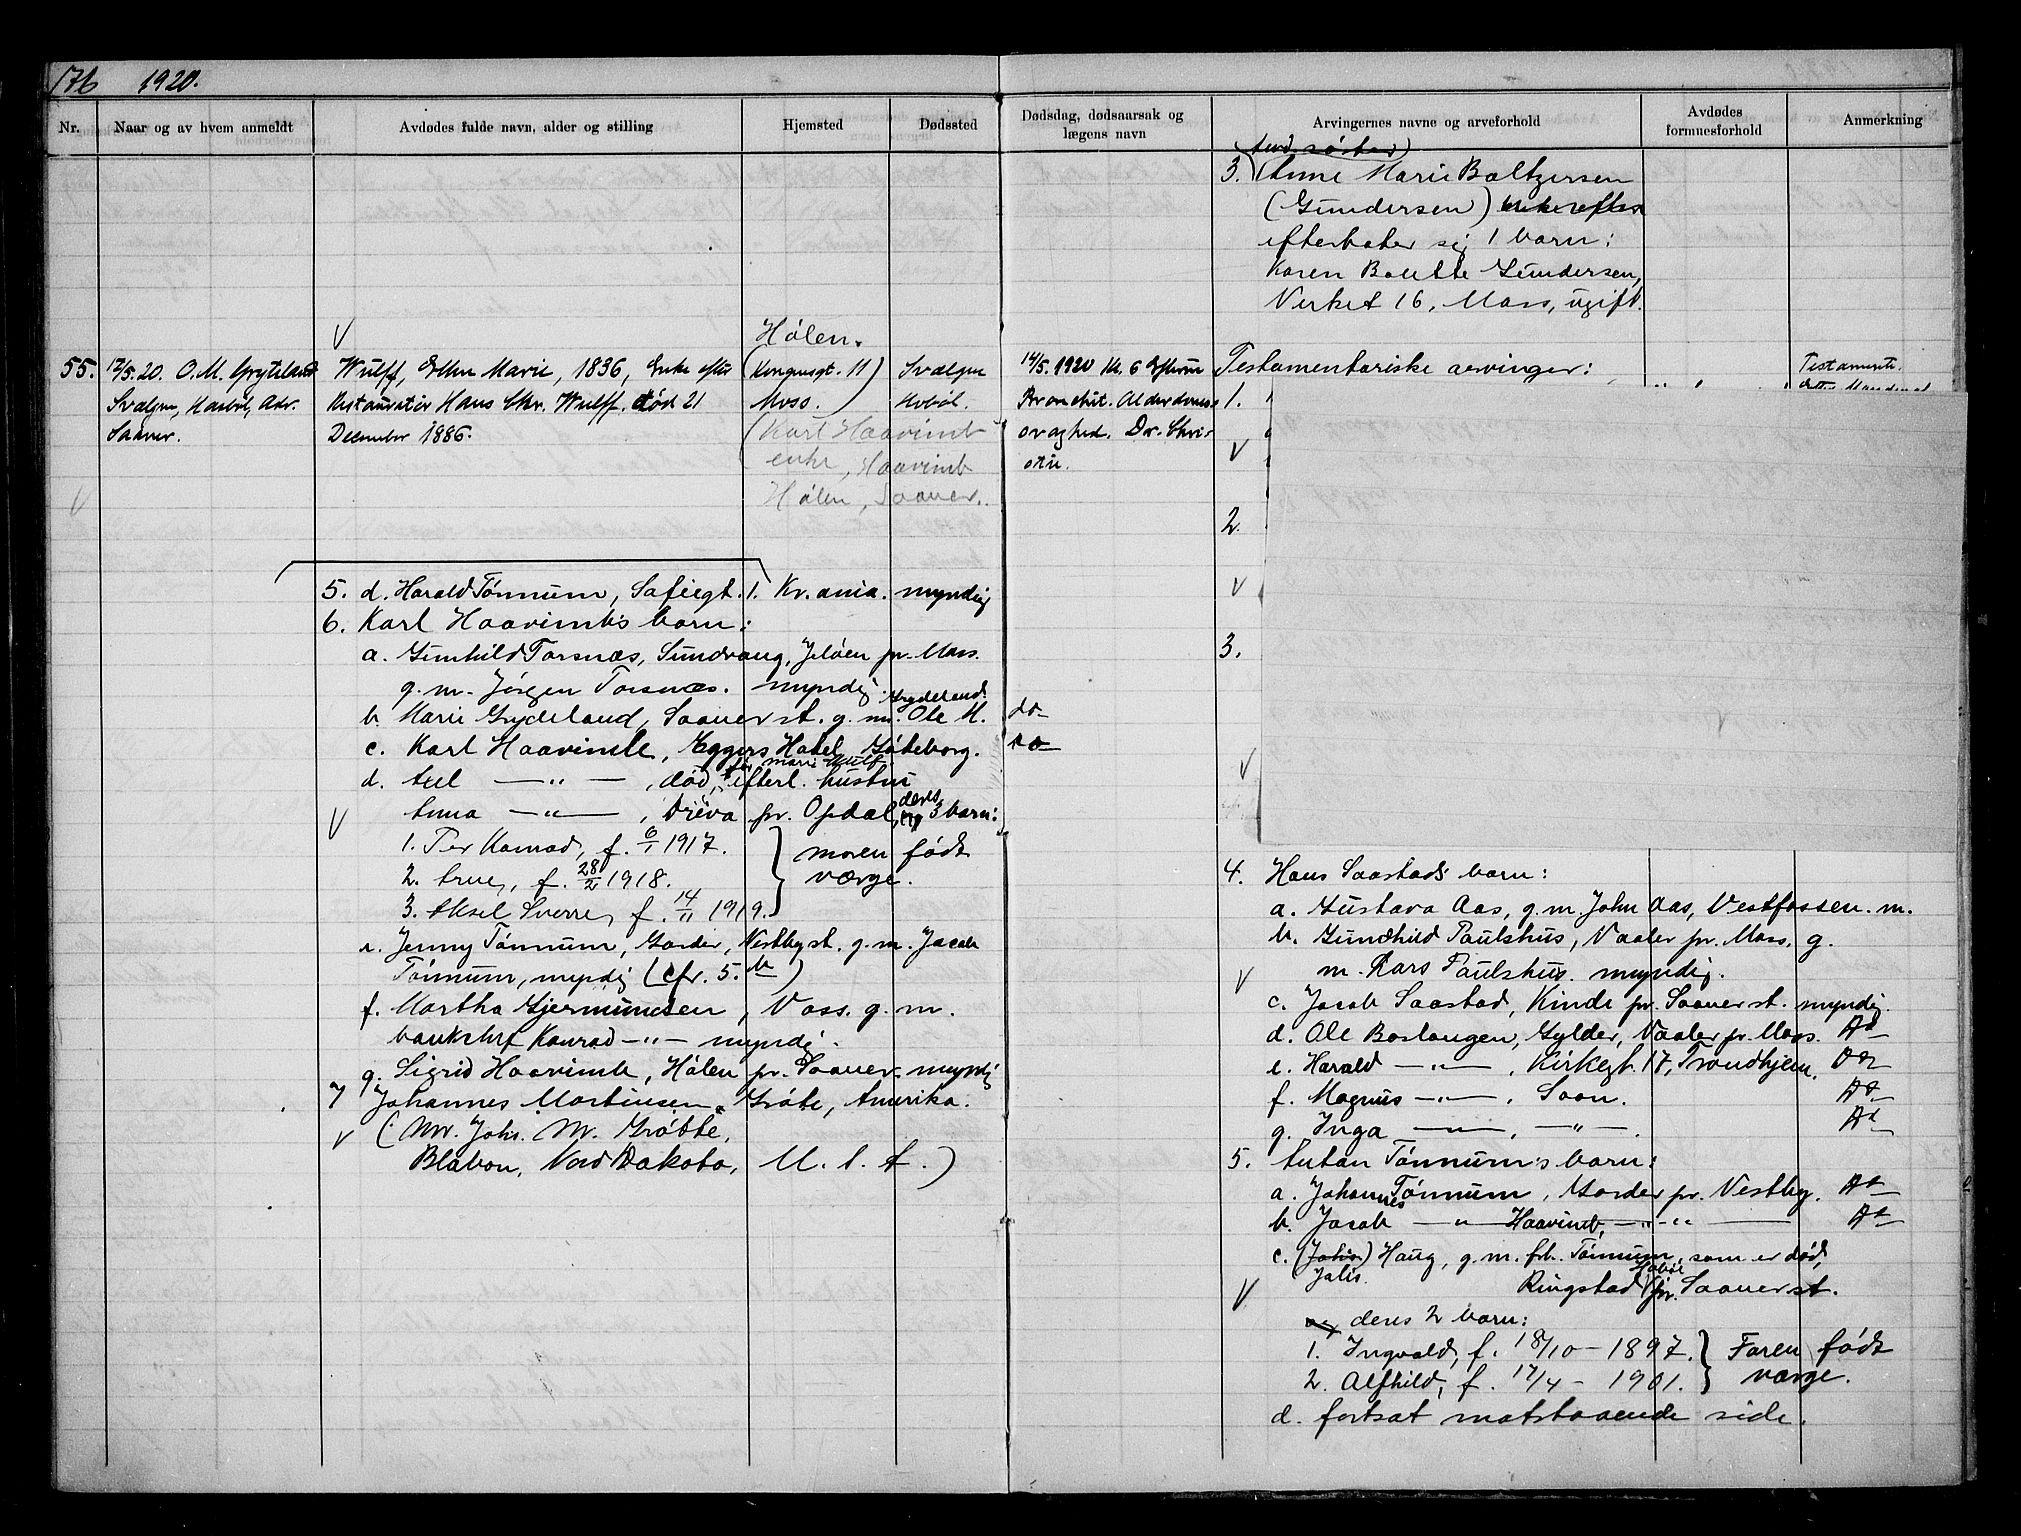 176 1920.
Nr.
Naar og av hvem anmeldt
Avdødes fulde navn, alder og stilling
Hjemsted
Dødssted
Dødsdag, dødsaarsak og
lægens navn
Arvingernes navne og arveforhold
Avdødes
formuesforhold
Anmerkning
3. Anne Marie Baltzersen
(Gundersen)
efterlater sig 1 barn:
Karen Gundersen,
Verket 16, Moss, ugift.
55.
17/5.20. O. M. Grydeland
Svalgen, Haabøl, Adr.
Saaner.
Wulff, Ellen Marie, 1836, Enke efter
Restauratør Hans Chr. Wulff. død 21
December 1886.
Hølen.
(Kongensgt. 11)
Moss.
(Karl Haavimb
enke, Haavimb
Hølen, Saaner.
Svalgen
Hobøl.
14/5.1920 Kl. 6 Efterm
Bronchit. Alderdoms-
svaghed. Dr. Chri-
stie.
Testamentariske arvinger:
Testamente
1.
2.
3.
5. d. Harald Tønnum, Sofiegt. 1. Kr.ania. myndig
6. Karl Haavimb's barn:
a. Gunhild Torsnæs, Sundvang, Jeløen pr. Moss.
g. m. Jørgen Torsnæs. myndig.
b. Marie Grydeland, Saaner st. g. m. Ole M. Grydeland. do
c. Karl Haavimb, Eggers Hotel, Göteborg. do
d. Axel —"—, død, efterl. hustru
Anna —"—, Driva pr. Opdal, deres 3 barn:
1. Per Konrad, f. 6/1 1917.
2. Arne, f. 28/2 1918.
3. Aksel Sverre, f. 14/11 1919.
moren født
værge.
e. Jenny Tønnum, Garder, Vestby st. g. m. Jacob
Tønnum, myndig (cfr. 5. b)
f. Martha Gjermundsen, Voss. g. m.
Konrad —"— myndig.
g. Sigrid Haavimb, Hølen pr. Saaner. myndig
7 Johannes Martinsen Grøte, Amerika.
(Mr. Johs. M. Grøtte,
Blabon, Nord Dakota, U. S. A.)
4. Hans Saastads barn:
a. Gustava Aas, g. m. John Aas, Vestfossen. m.
b. Gundhild Paulshus, Vaaler pr. Moss. g.
m. Lars Paulshus. myndig.
c. Jacob Saastad, Kinde pr. Saaner st. myndig.
d. Ole Boslangen, Gylder, Vaaler pr. Moss. do
e. Harald —"—, Kirkegt. 17, Trondhjem. do
f. Magnus —"—, Soon. do
g. Inga —"—, —"—. do
5. Anton Tønnum's barn:
a. Johannes Tønnum, Garder pr. Vestby. do
b. Jacob —"— Haavimb, —"—"— do
c. (Johs.) Haug, g. m. frk. Tønnum, som er død,
Ringstad Hobøl pr. Saaner st.
og deres 2 barn:
1. Ingvald, f. 18/10 - 1897.
2. Alfhild, f. 17/4 - 1901.
Faren født
værge.
d. fortsat motstaaende side.